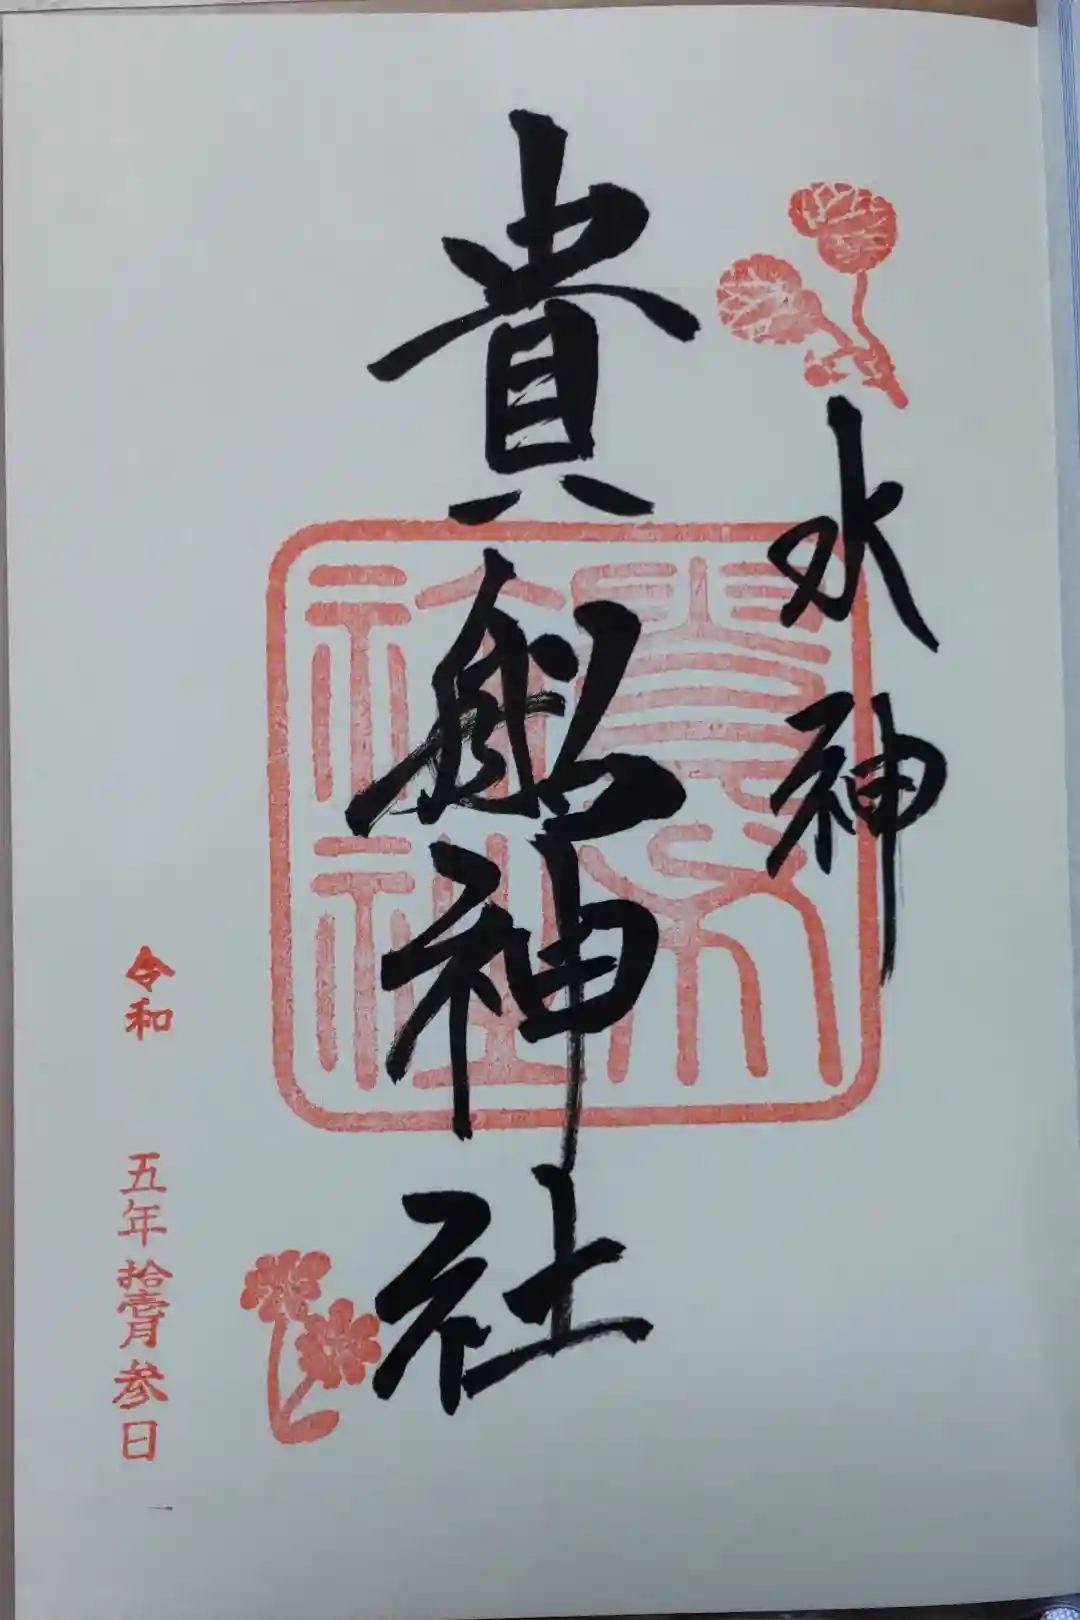 水神
貴船神社
貴船神社
令和 五年拾壱月参日